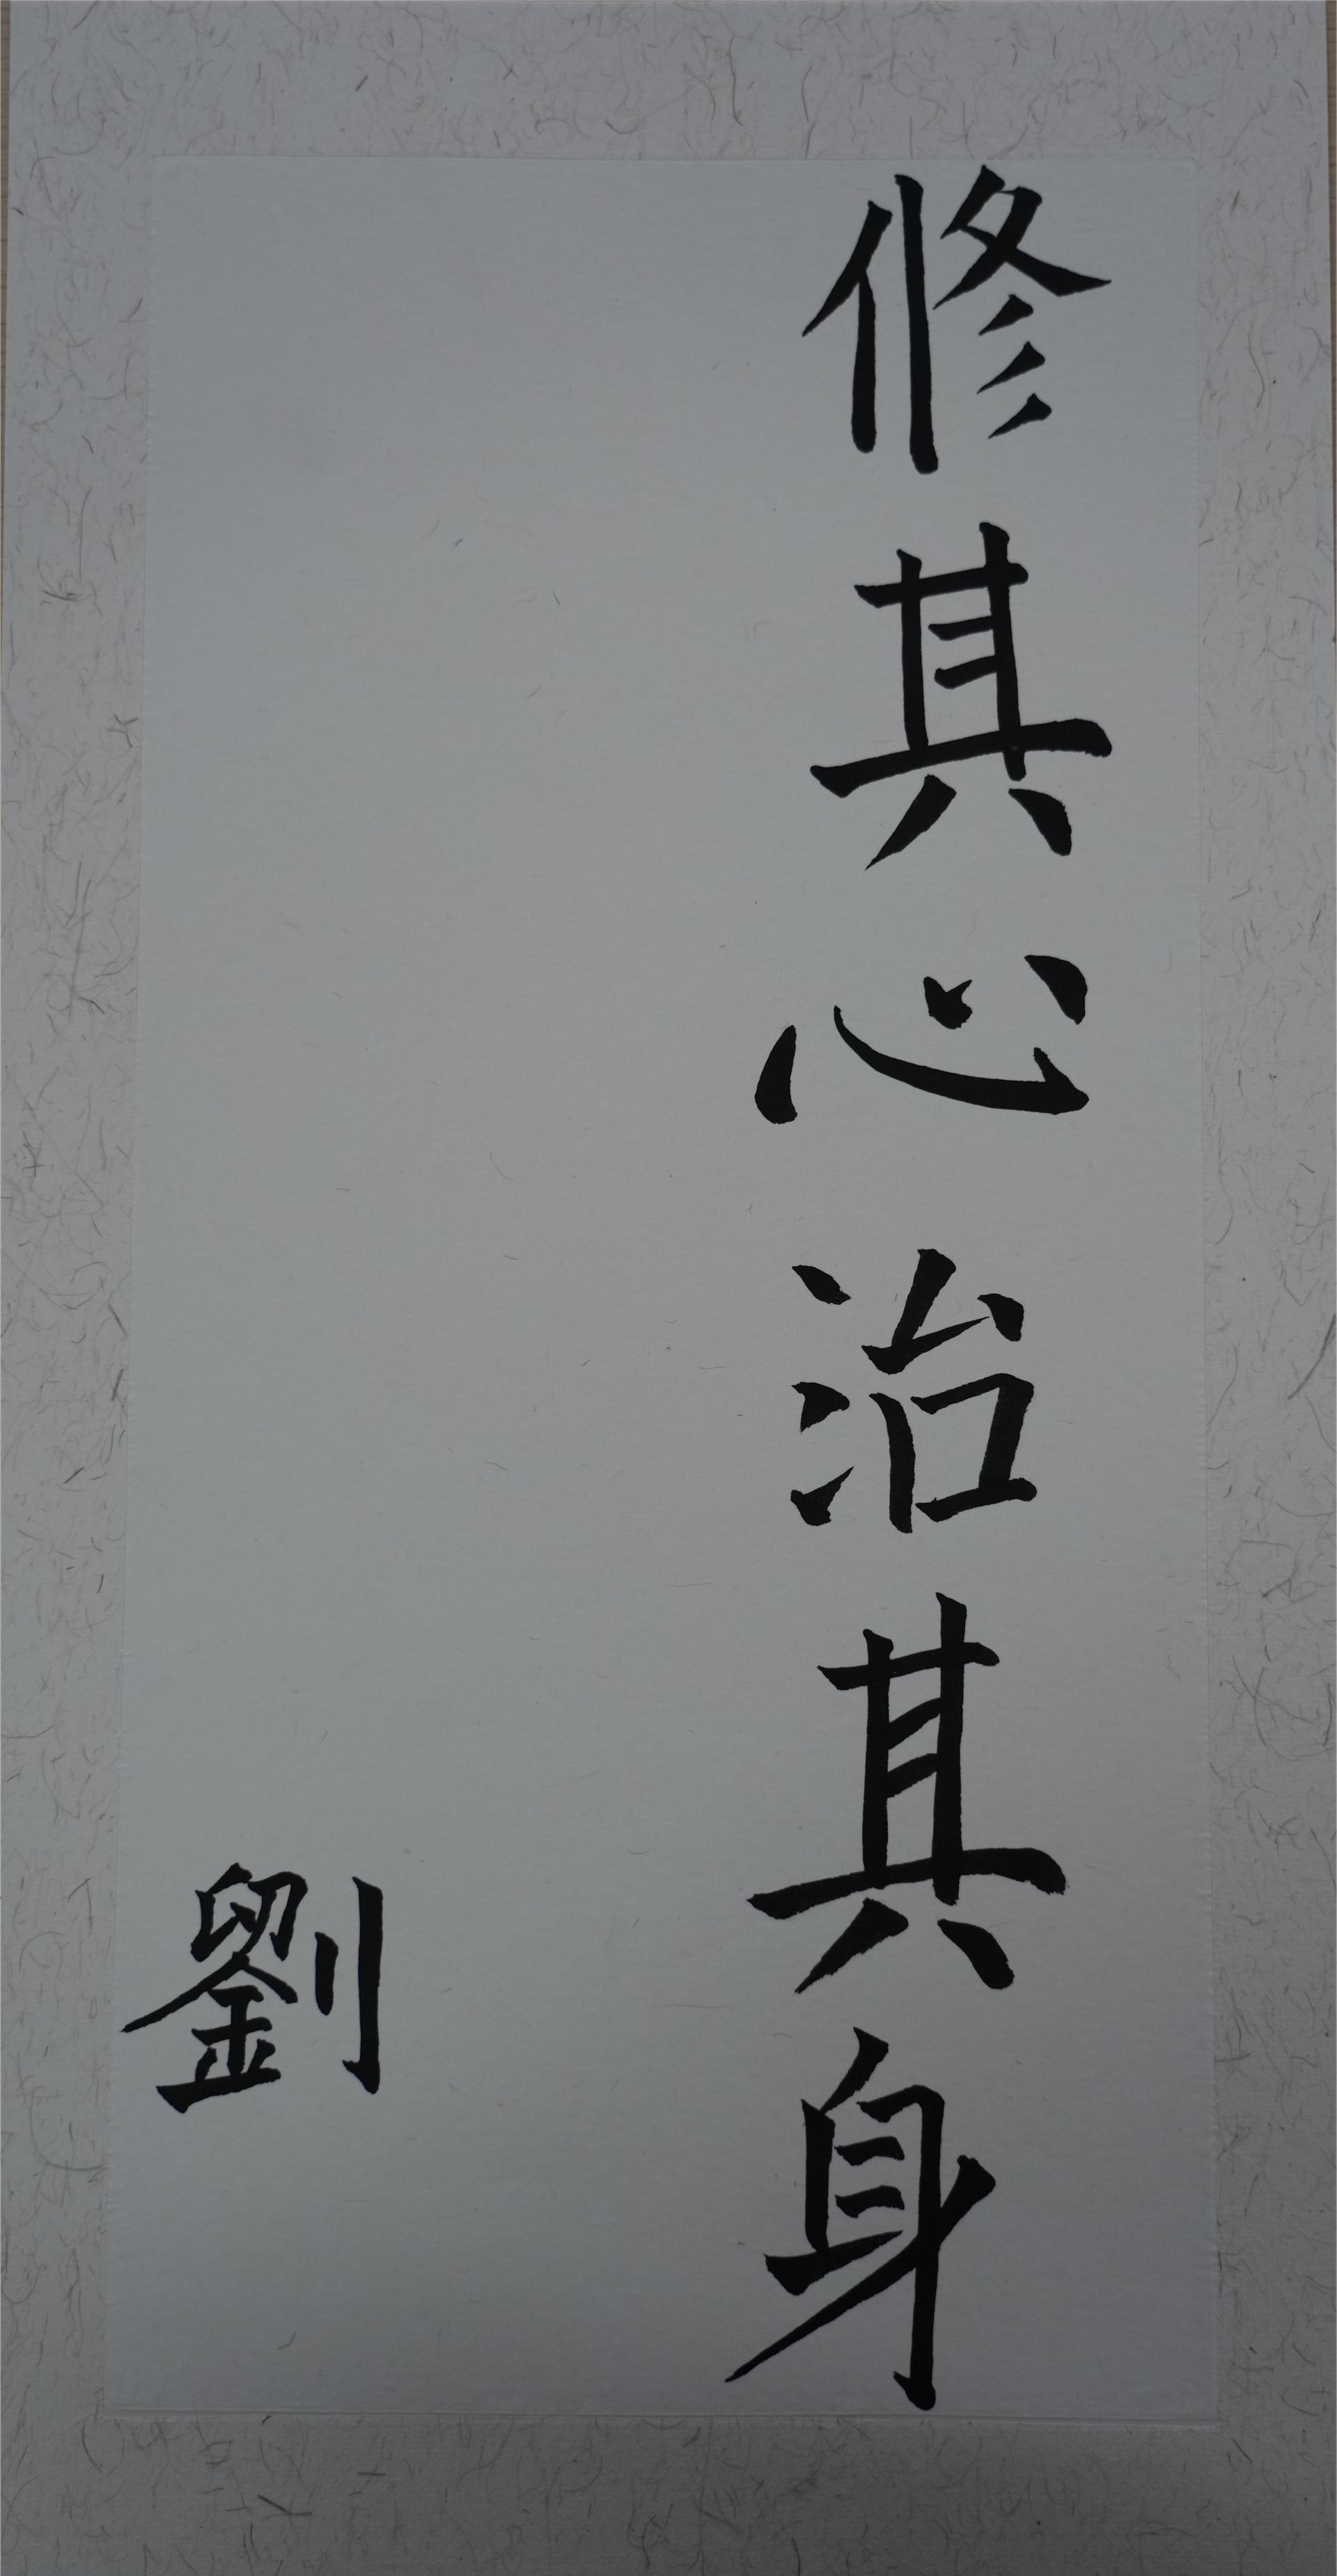 修其心治其身
劉